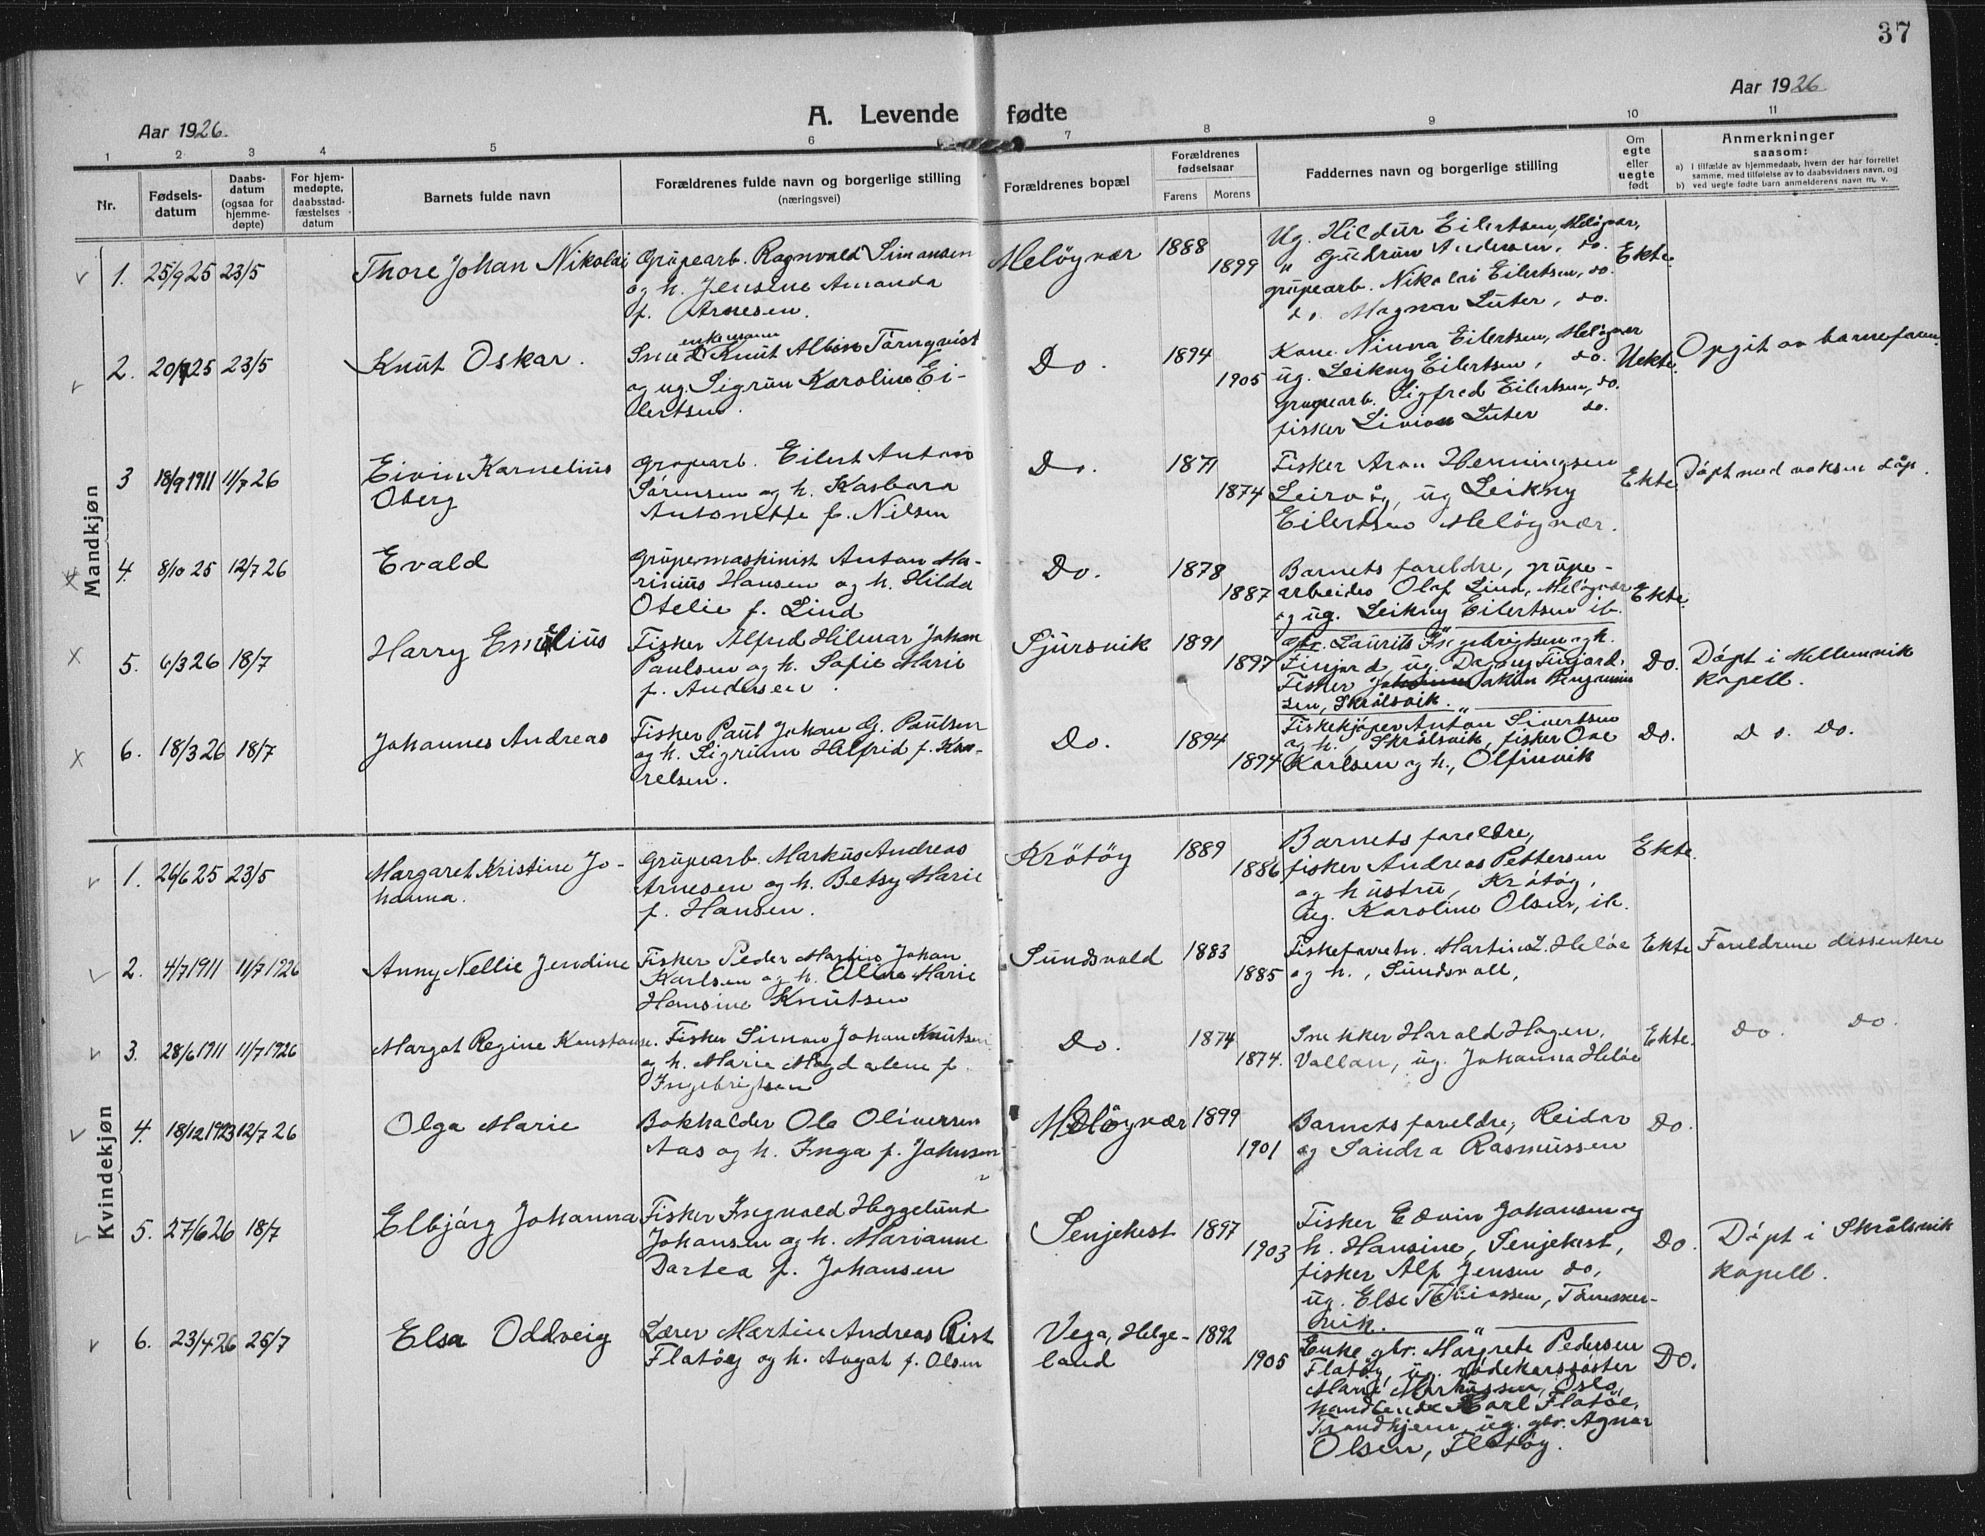 37
Aar 1926.
A. Levende fødte
Aar 1926
1 2 3 4 5 6 7 8 9 10 11
Nr.
Fødsels-
datum
Daabs-
datum
(ogsaa for
hjemme-
døpte)
For hjem-
medøpte,
daabsstad-
fæstelses
datum
Barnets fulde navn
Forældrenes fulde navn og borgerlige stilling
(næringsvei)
Forældrenes bopæl
Forældrenes
fødselsaar
Farens Morens
Faddernes navn og borgerlige stilling
Om
egte
eller
uegte
født
Anmerkninger
saasom:
a) I tilfælde av hjemmedaab, hvem der har forrettet
samme, med tilføielse av to daabsvidners navn, og
b) ved uegte fødte barn anmelderens navn m. v.
Mandkjøn
1. 25/9 25 23/5
Thore Johan Nikolai
Grupearb. Ragnvald Simonsen
og h. Jensine Amanda
f. Arnesen.
Meløyvær
1888
1899
Ug. Hildur Eilertsen, Meløyvær,
" Gudrun Andersen, do.
grupearb. Nikolai Eilertsen, do.
do Magnar Luter, do.
Ekte.
2. 20/7 25 23/5
Knut Oskar.
enkemann
Smed Knut Albin Törnqvist
og ug. Sigrun Karoline Ei-
lertsen.
Do.
1894
1905
Kone Ninna Eilertsen, Meløyvær
ug. Leikny Eilertsen, do.
grupearb. Sigfred Eilertsen, do.
fisker Livion Luter do.
Uekte.
Opgit av barnefaren.
3 18/9 1911 11/7 26
Eivin Kornelius
Oberg
Grupearb. Eilert Anton
Sørensen og h. Kasbara
Antonette f. Nilsen
Do.
1871
1874
Fisker Aron Henningsen
Leirvåg, ug Leikny
Eilertsen Meløyvær.
Ekte.
Døpt med voksen dåp.
4. 8/10 25 12/7 26
Evald
Grupemaskinist Anton Ma-
rinius Hansen og h. Hilda
Otelie f. Lind
Do.
1878
1887
Barnets foreldre, grupe-
arbeider Olaf Lind, Meløyvær
og ug. Leikny Eilertsen ib.
Ekte.
5. 6/3 26 18/7
Harry Emelius
Fisker Alfred Hilmar Johan
Paulsen og h. Sofie Marie
f. Andersen.
Sjursvik
1891
1897
gbr. Laurits Ingebrigtsen og h.
Finjord, ug. Dagny Finjord.
Fisker Johannes Jakim Benjamin-
sen, Skrålsvik.
Do.
Døpt i Mellemvik
kapell.
6. 18/3 26 18/7
Johannes Andreas
Fisker Paul Johan G. Paulsen
og h. Sigrunn Helfrid f. Kar-
relsen.
Do.
1894
1894
Fiskekjøper Anton Sivertsen
og h., Skrålsvik, fisker Ove
Karlsen og h., Olfinvik
Do.
Do. Do.
Kvindekjøn
1. 26/6 25 23/5
Margaret Kristine Jo-
hanna.
Grupearb. Markus Andreas
Arnesen og h. Betsy Marie
f. Hansen.
Krøtøy
1889
1886
Barnets foreldre,
fisker Andreas Pettersen
og hustru, Krøtøy,
ug. Karoline Olsen, ib.
Ekte.
2. 4/7 1911 11/7 1926
Anny Nellie Jendine
Fisker Peder Martin Johan
Karlsen og h. Ellen Marie
Hansine Knutsen
Sundsvold
1883
1885
Fiskeforretn. Martin L. Heløe
og h., Sundsvoll,
Ekte
Foreldrene dissentere
3. 28/6 1911 11/7 1926
Margot Regine Konstanse.
Fisker Simon Johan Knutsen
og h. Marie Magdalene f.
Ingebrigtsen
Do.
1874
1874.
Snekker Harald Hagen,
Vollan, ug. Johanna Heløe
Ekte.
Do. Do.
4. 18/12 1923 12/7 26
Olga Marie
Bokholder Ole Oliversen
Aas og h. Inga f. Johnsen
Meløyvær
1899
1901
Barnets foreldre, Reidar
og Sandra Rasmussen
Do.
5. 27/6 26 18/7
Elbjørg Johanna
Fisker Ingvald Heggelund
Johansen og h. Marianne
Dortea f. Johansen
Senjehest
1897
1903
Fisker Edvin Johansen og
h. Hansine, Senjehest,
fisker Alf Jensen do,
ug. Else Tobiassen,
Do.
Døpt i Skrålsvik
kapell.
6. 23/4 26 25/7
Elsa Oddveig
Lærer Martin Andreas Rist
Flatøy og h. Aagot f. Olsen
Vega, Helge-
land
1892
1905
Enke gbr. Margrete Pedersen
Flatøy, ug. rødekorssøster
Marie Markussen, Oslo,
handlende Karl Flatøe,
Trondhjem, ug. gbr. Agnar
Olsen, Flatøy.
Do.